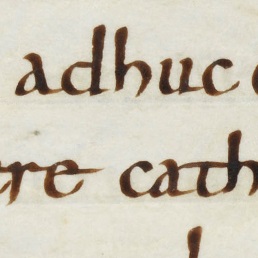 adhuc
ere cath